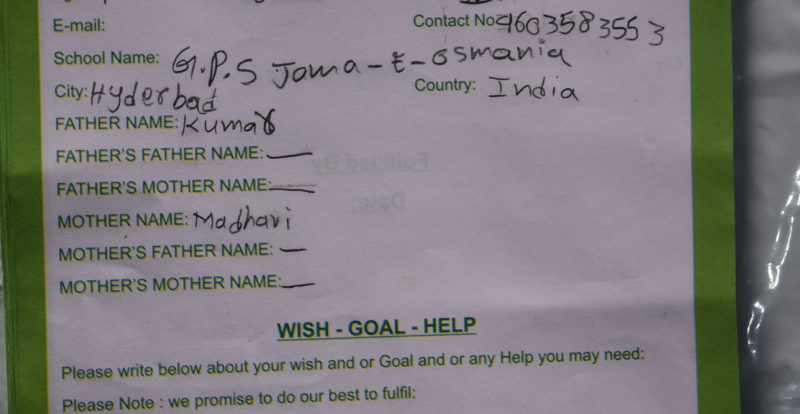 E-mail: Contact No 9603583553
School Name: G.P.S Jama-E-osmania
City: Hyderbad Country: India
FATHER NAME: Kumar
FATHER'S FATHER NAME: —
FATHER'S MOTHER NAME: —
MOTHER NAME: Madhavi
MOTHER'S FATHER NAME: —
MOTHER'S MOTHER NAME: —
WISH - GOAL - HELP
Please write below about your wish and or Goal and or any Help you may need:
Please Note : we promise to do our best to fulfil: